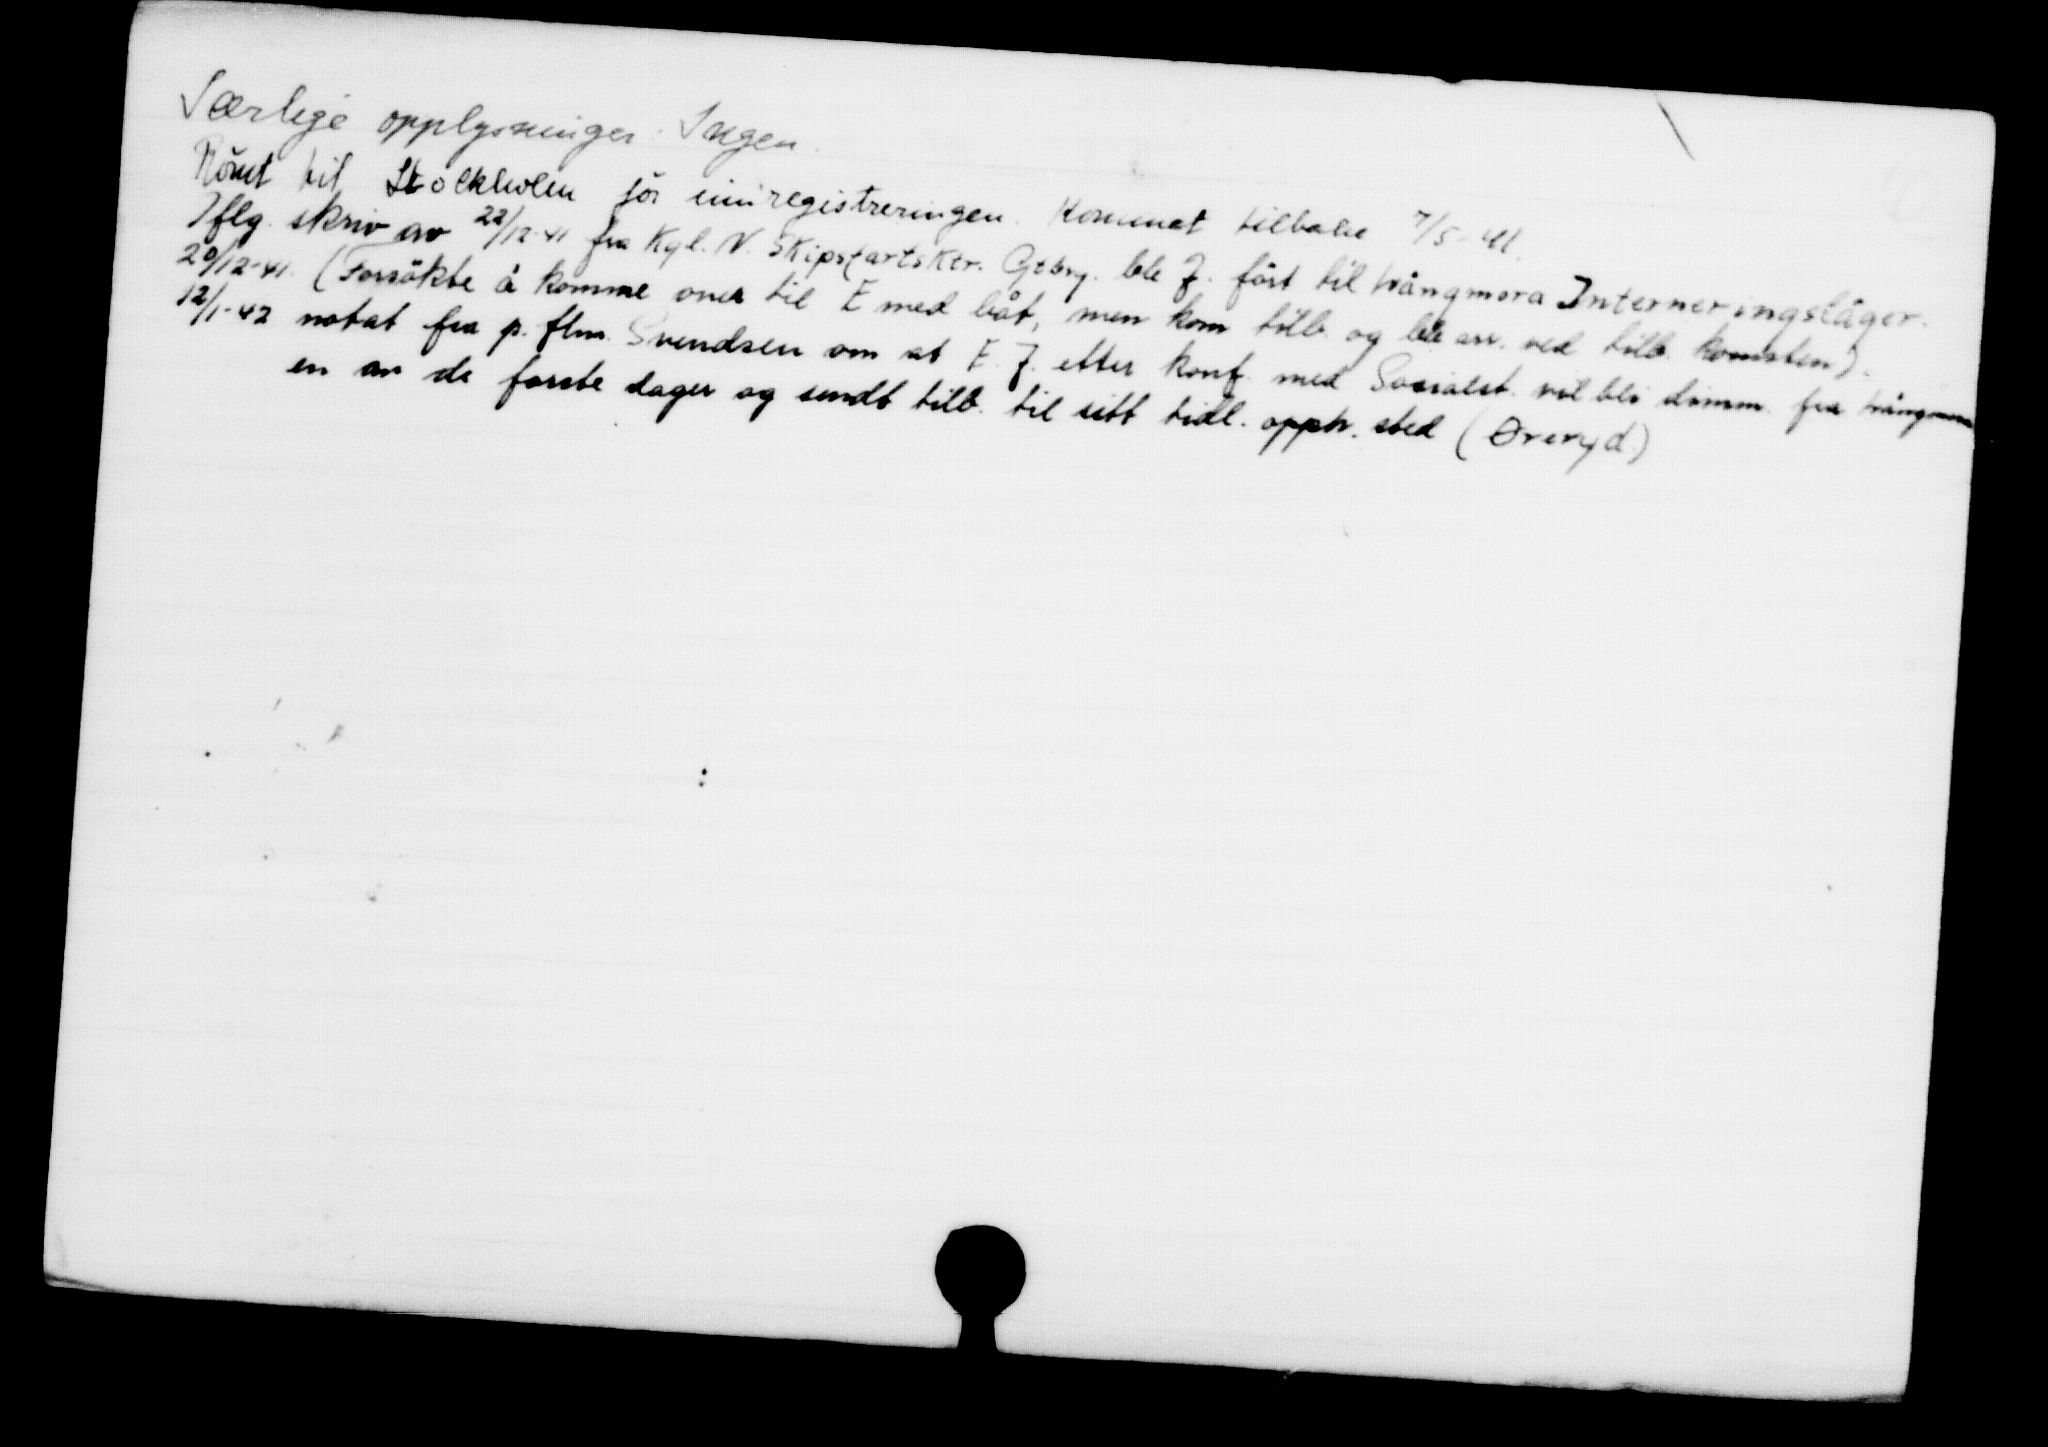 Særlige opplysninger. Ingen.
Römt til Stockholm för innregistreringen. Kommet tilbake 7/5-41.
Iflg. skriv av 22/12-41 fra Kgl. N. Skipsfartsktr. Gtbrg. ble J. fört til Vångmora Interneringsläger.
20/12-41. (Forsökte å komme over til E med båt, men kom tilb. og ble arr. ved tilb. komsten).
12/1-42 notat fra p. flm. Svendsen om at E. J. etter konf. med Sosialst. vil bli dimm. fra Vångmora
en av de første dager og sendt tilb. til sitt tidl. opph. sted (Øreryd)